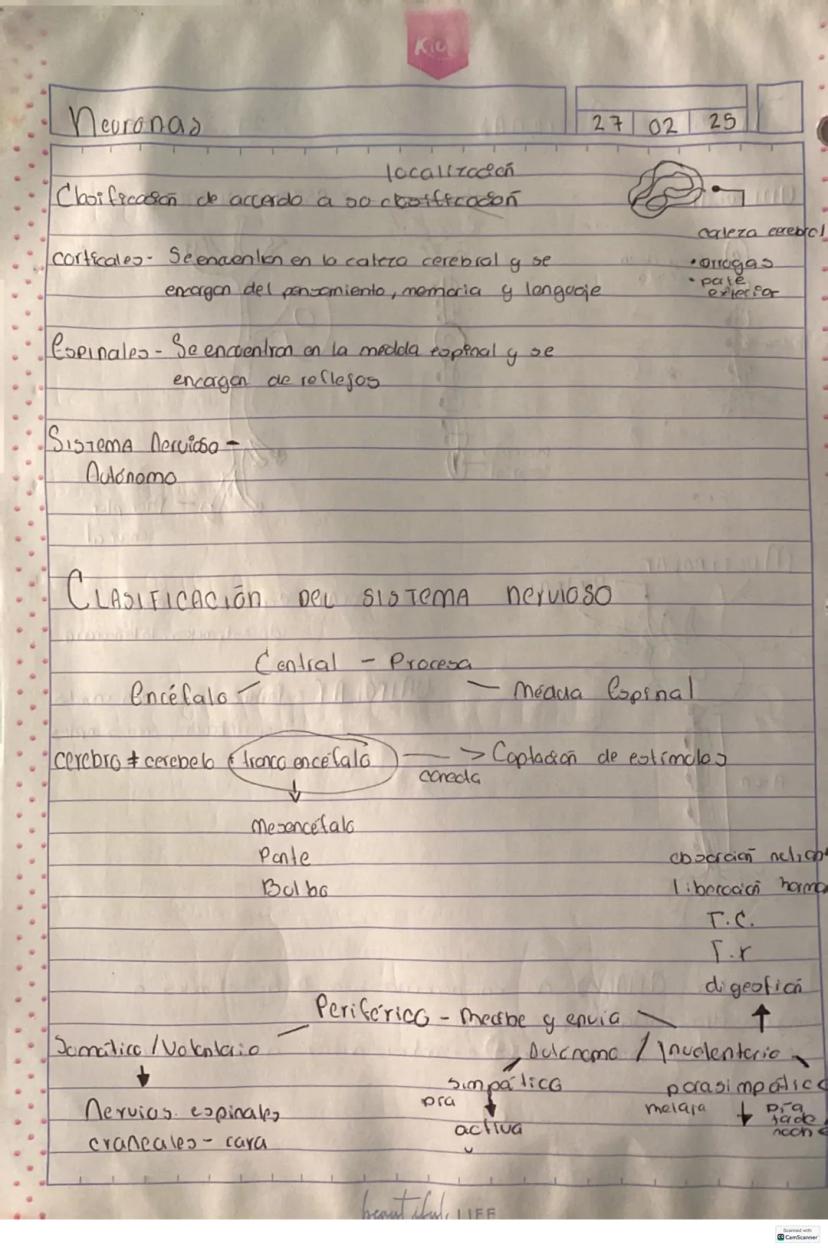 Kiu
Neuronas
27 02 25
localización
Clasificación de acuerdo a su clasificación
corteza cerebral
corticales - Se encuentran en la corteza cerebral y se
encargan del pensamiento, memoria y lenguaje
• arrugas
• parte
exterior
Espinales - Se encuentran en la medula espinal y se
encargan de reflejos
Sistema Nervioso -
Autónomo
CLASIFICACIÓN DEL SISTEMA nervioso
Central - Procesa
Encéfalo - Médula Espinal
cerebro + cerebelo + tronco encéfalo -> Captación de estímulos
conecta
Mesencéfalo
Ponte
Bulbo
absorción
liberación
T.C.
T.r
digestión
Periférico - recibe y envia
Somático / Voluntario
Autónomo / Involuntario
simpático
parasimpático
Día
activa
tarde
noche
Nervios espinales
craneales - cara
beautiful LIFE
Scanned with
CamScanner